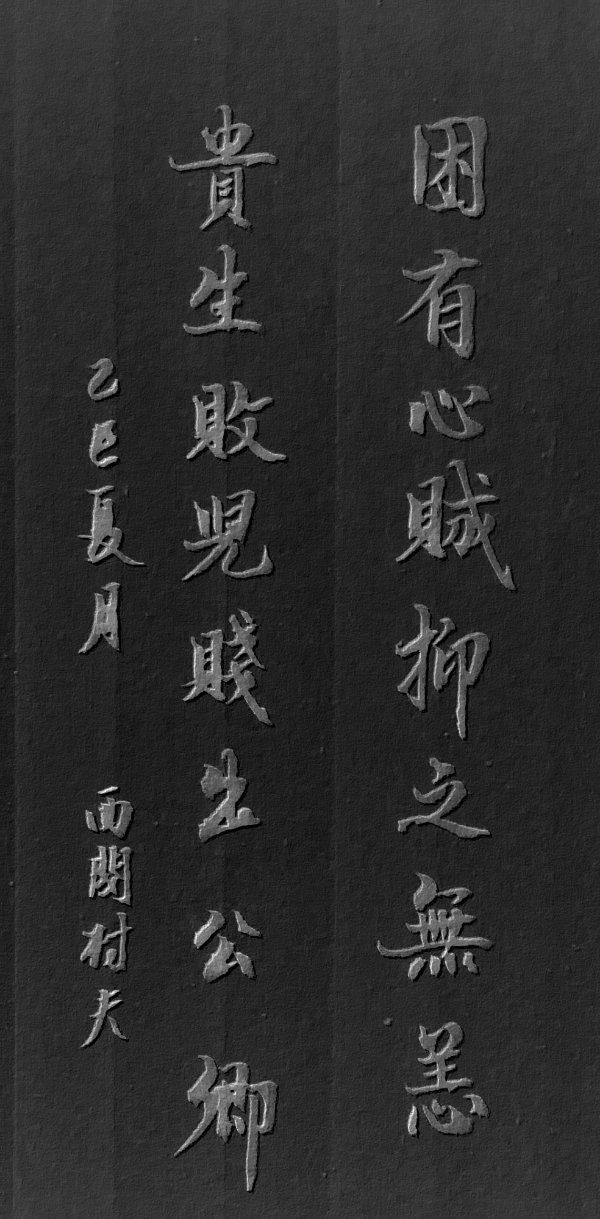 困有心賊抑之無恙
貴生敗兒賤出公卿
乙巳夏月
西閩村夫